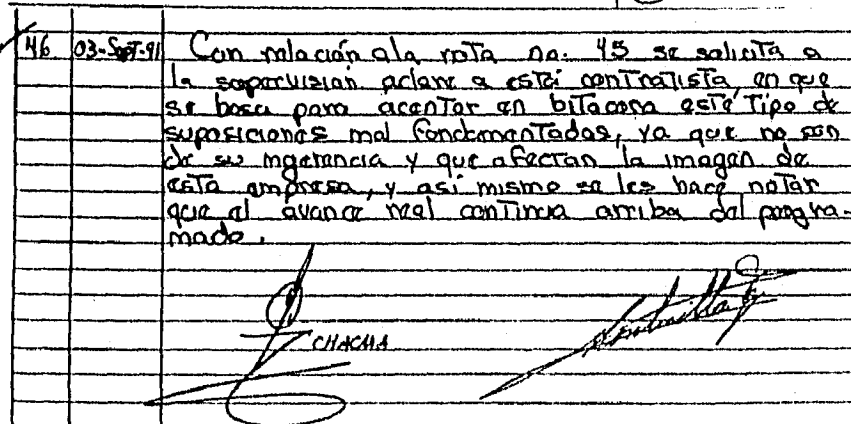 46 03-Sept-91 Con relación a la nota no. 45 se solicita a
la supervisión aclare a esta contratista, en que
se basa para acentar en bitácora este tipo de
suposiciones mal fundamentadas, ya que no son
de su ingerencia y que afectan la imagen de
esta empresa, y así mismo se les hace notar
que el avance real continua arriba del progra-
mado.
CHACHA